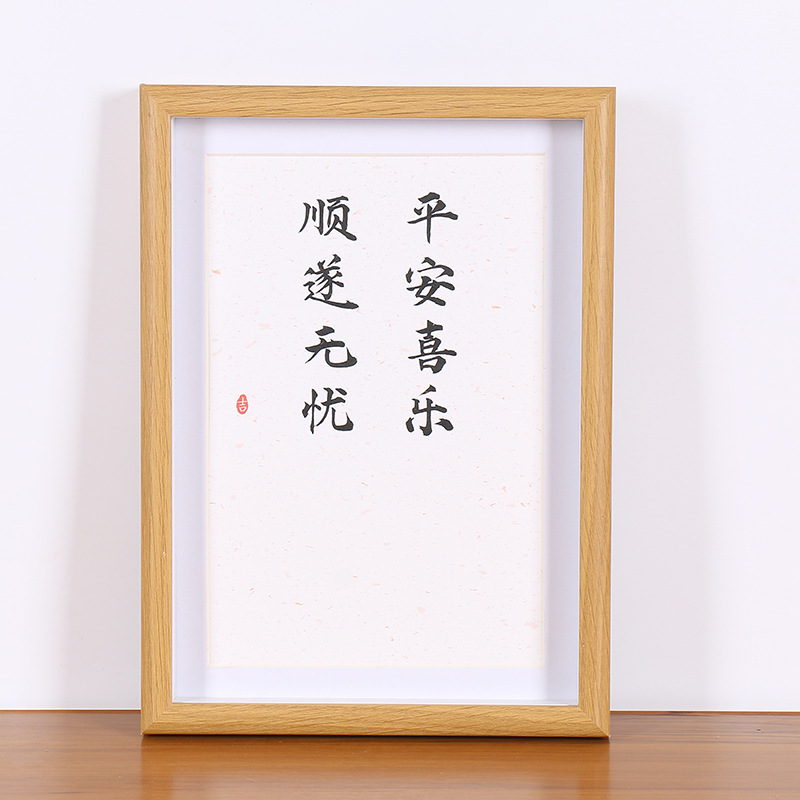 平安喜乐
顺遂无忧
吉